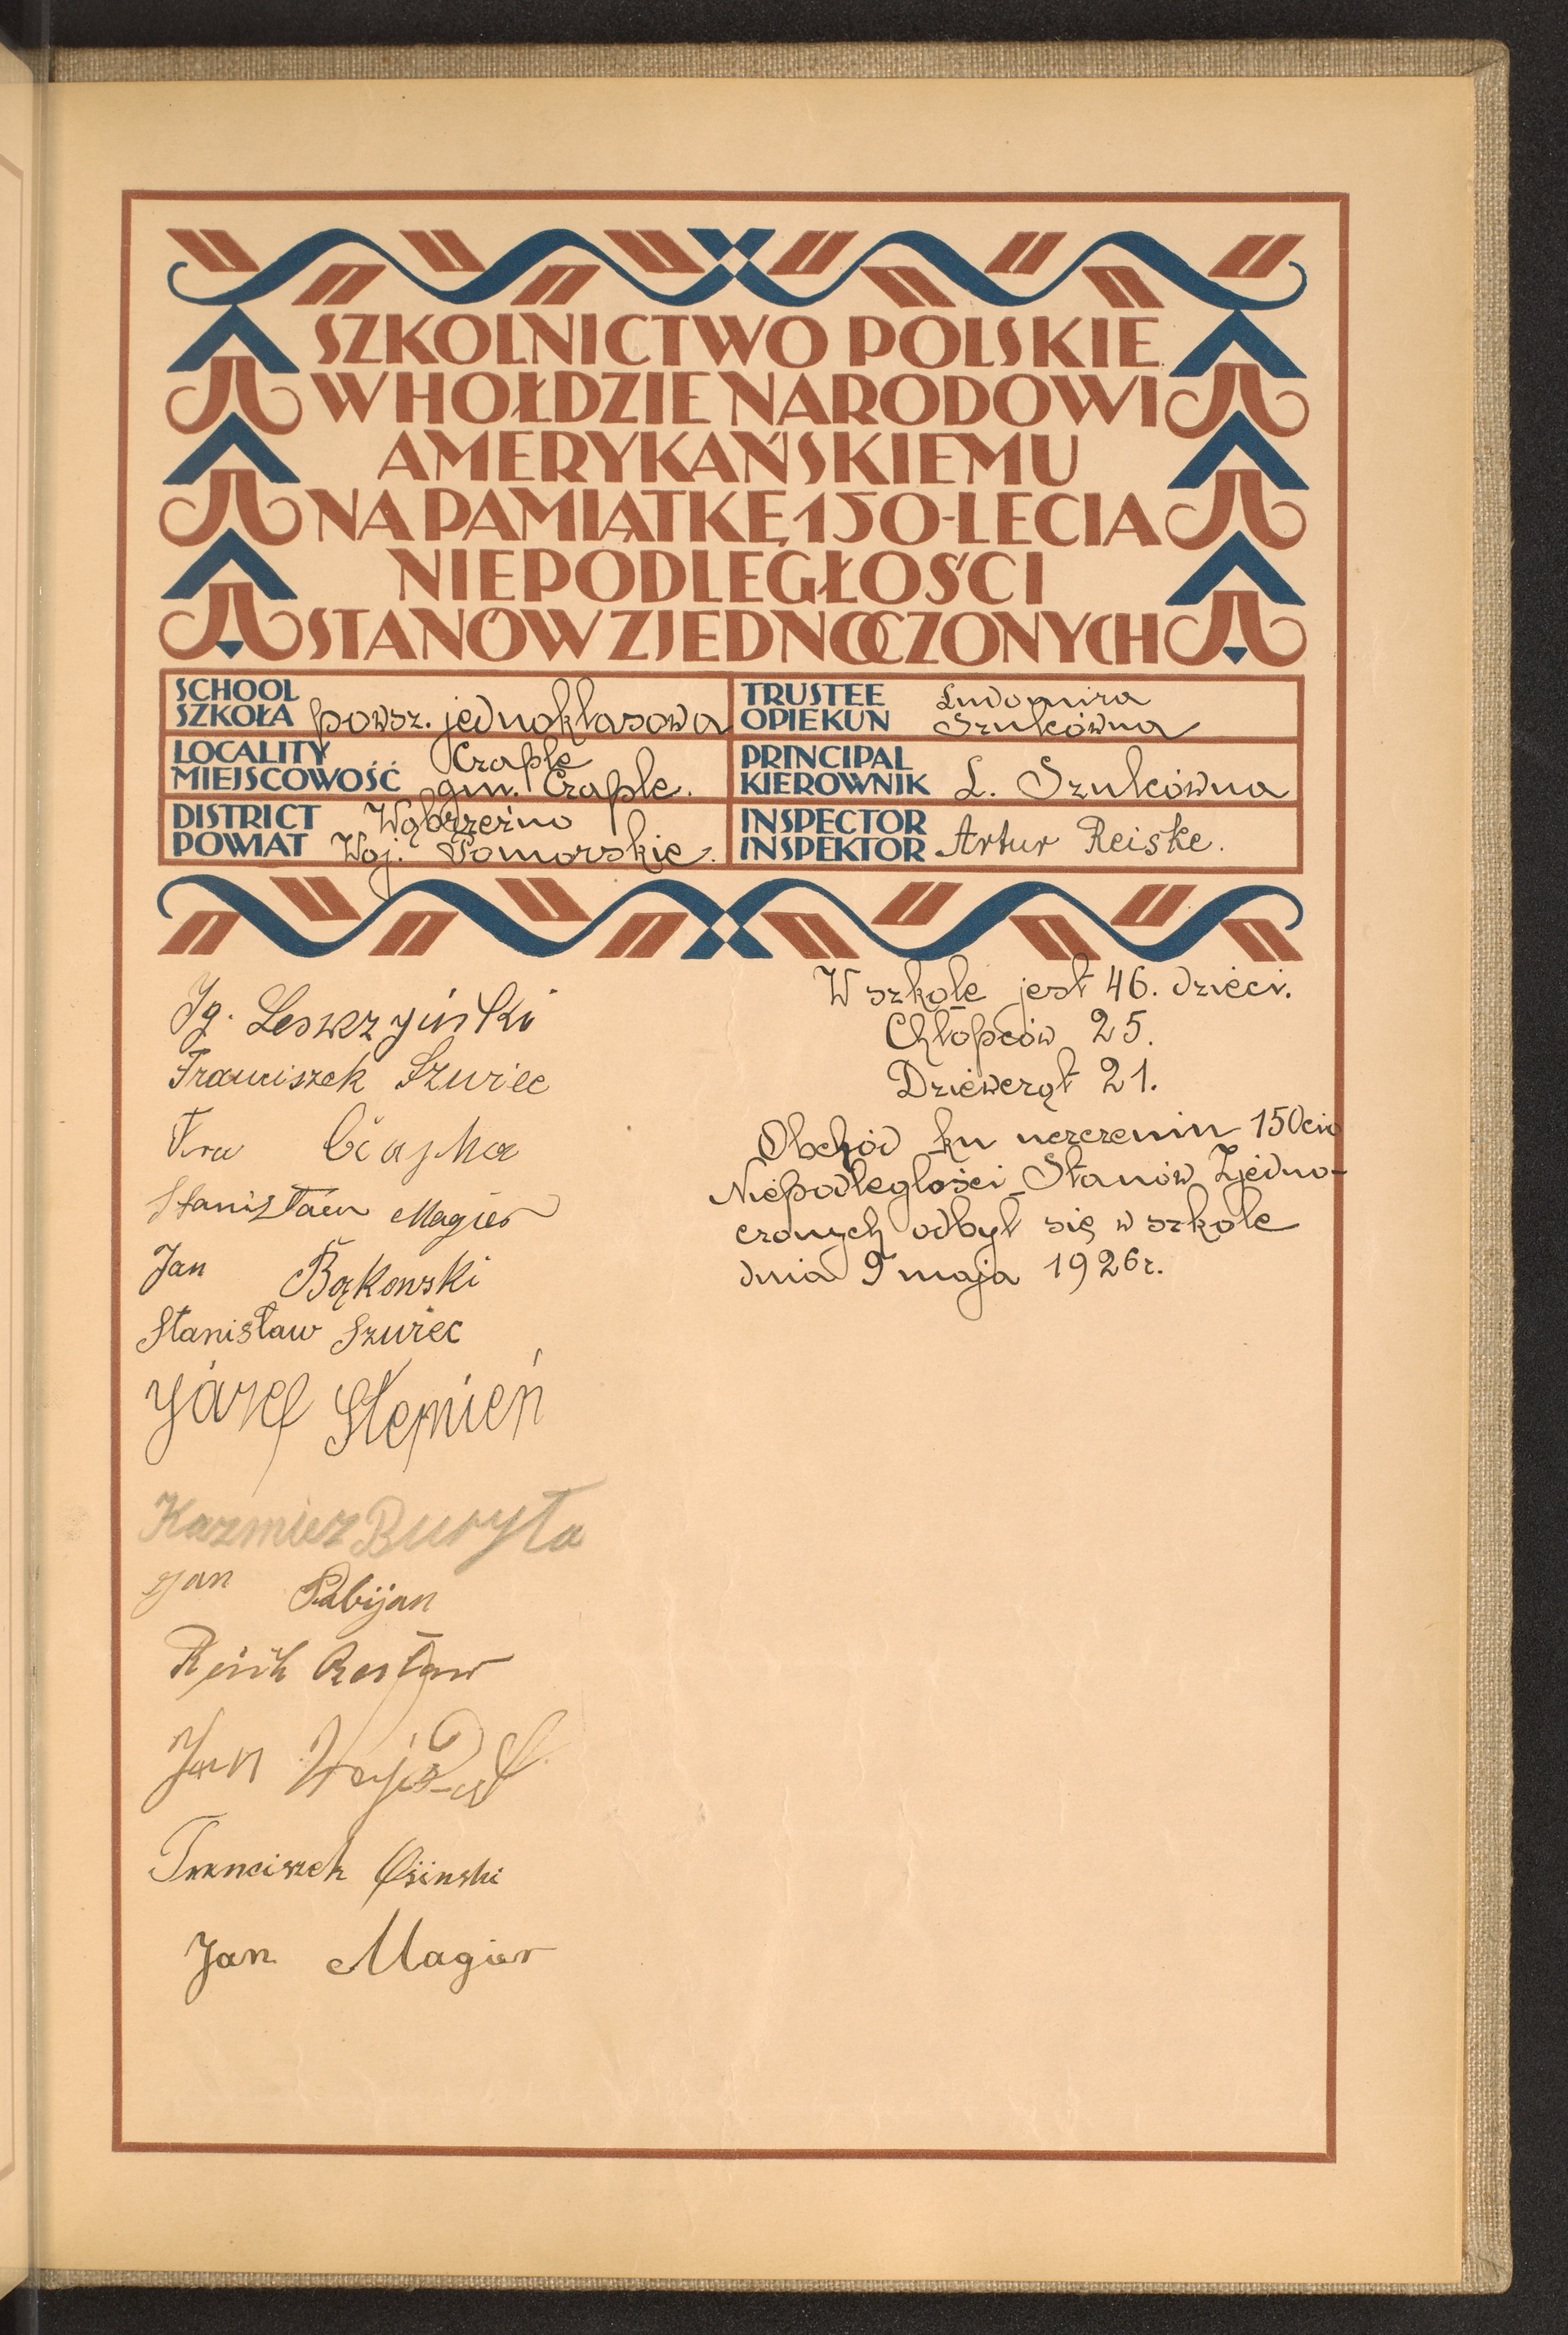 SZKOLNICTWO POLSKIE
W HOŁDZIE NARODOWI
AMERYKAŃSKIEMU
NA PAMIĄTKĘ 150-LECIA
NIEPODLEGŁOŚCI
STANÓW ZJEDNOCZONYCH
SCHOOL
SZKOŁA powsz. jednoklasowa
TRUSTEE
OPIEKUN
Ludomira
Szulcówna
LOCALITY
MIEJSCOWOŚĆ
Czaple
gm. Czaple.
PRINCIPAL
KIEROWNIK L. Szulcówna
DISTRICT
POWIAT
Wąbrzeźno
Woj. Pomorskie.
INSPECTOR
INSPEKTOR Artur Reiske.
Jg. Leszczyński
Franciszek Szwiec
Fra
Stanisław Magier
Jan Bąkowski
Stanisław Szwiec
Józef Stępień
Kazmierz Buryta
Jan Pabijan
Jan
Franciszek Osinski
Jan Magier
W szkole jest 46. dzieci.
Chłopców 25.
Dziewcząt 21.
Obchód ku uczczeniu 150cio
Niepodległości Stanów Zjedno-
czonych odbył się w szkole
dnia 9 maja 1926r.